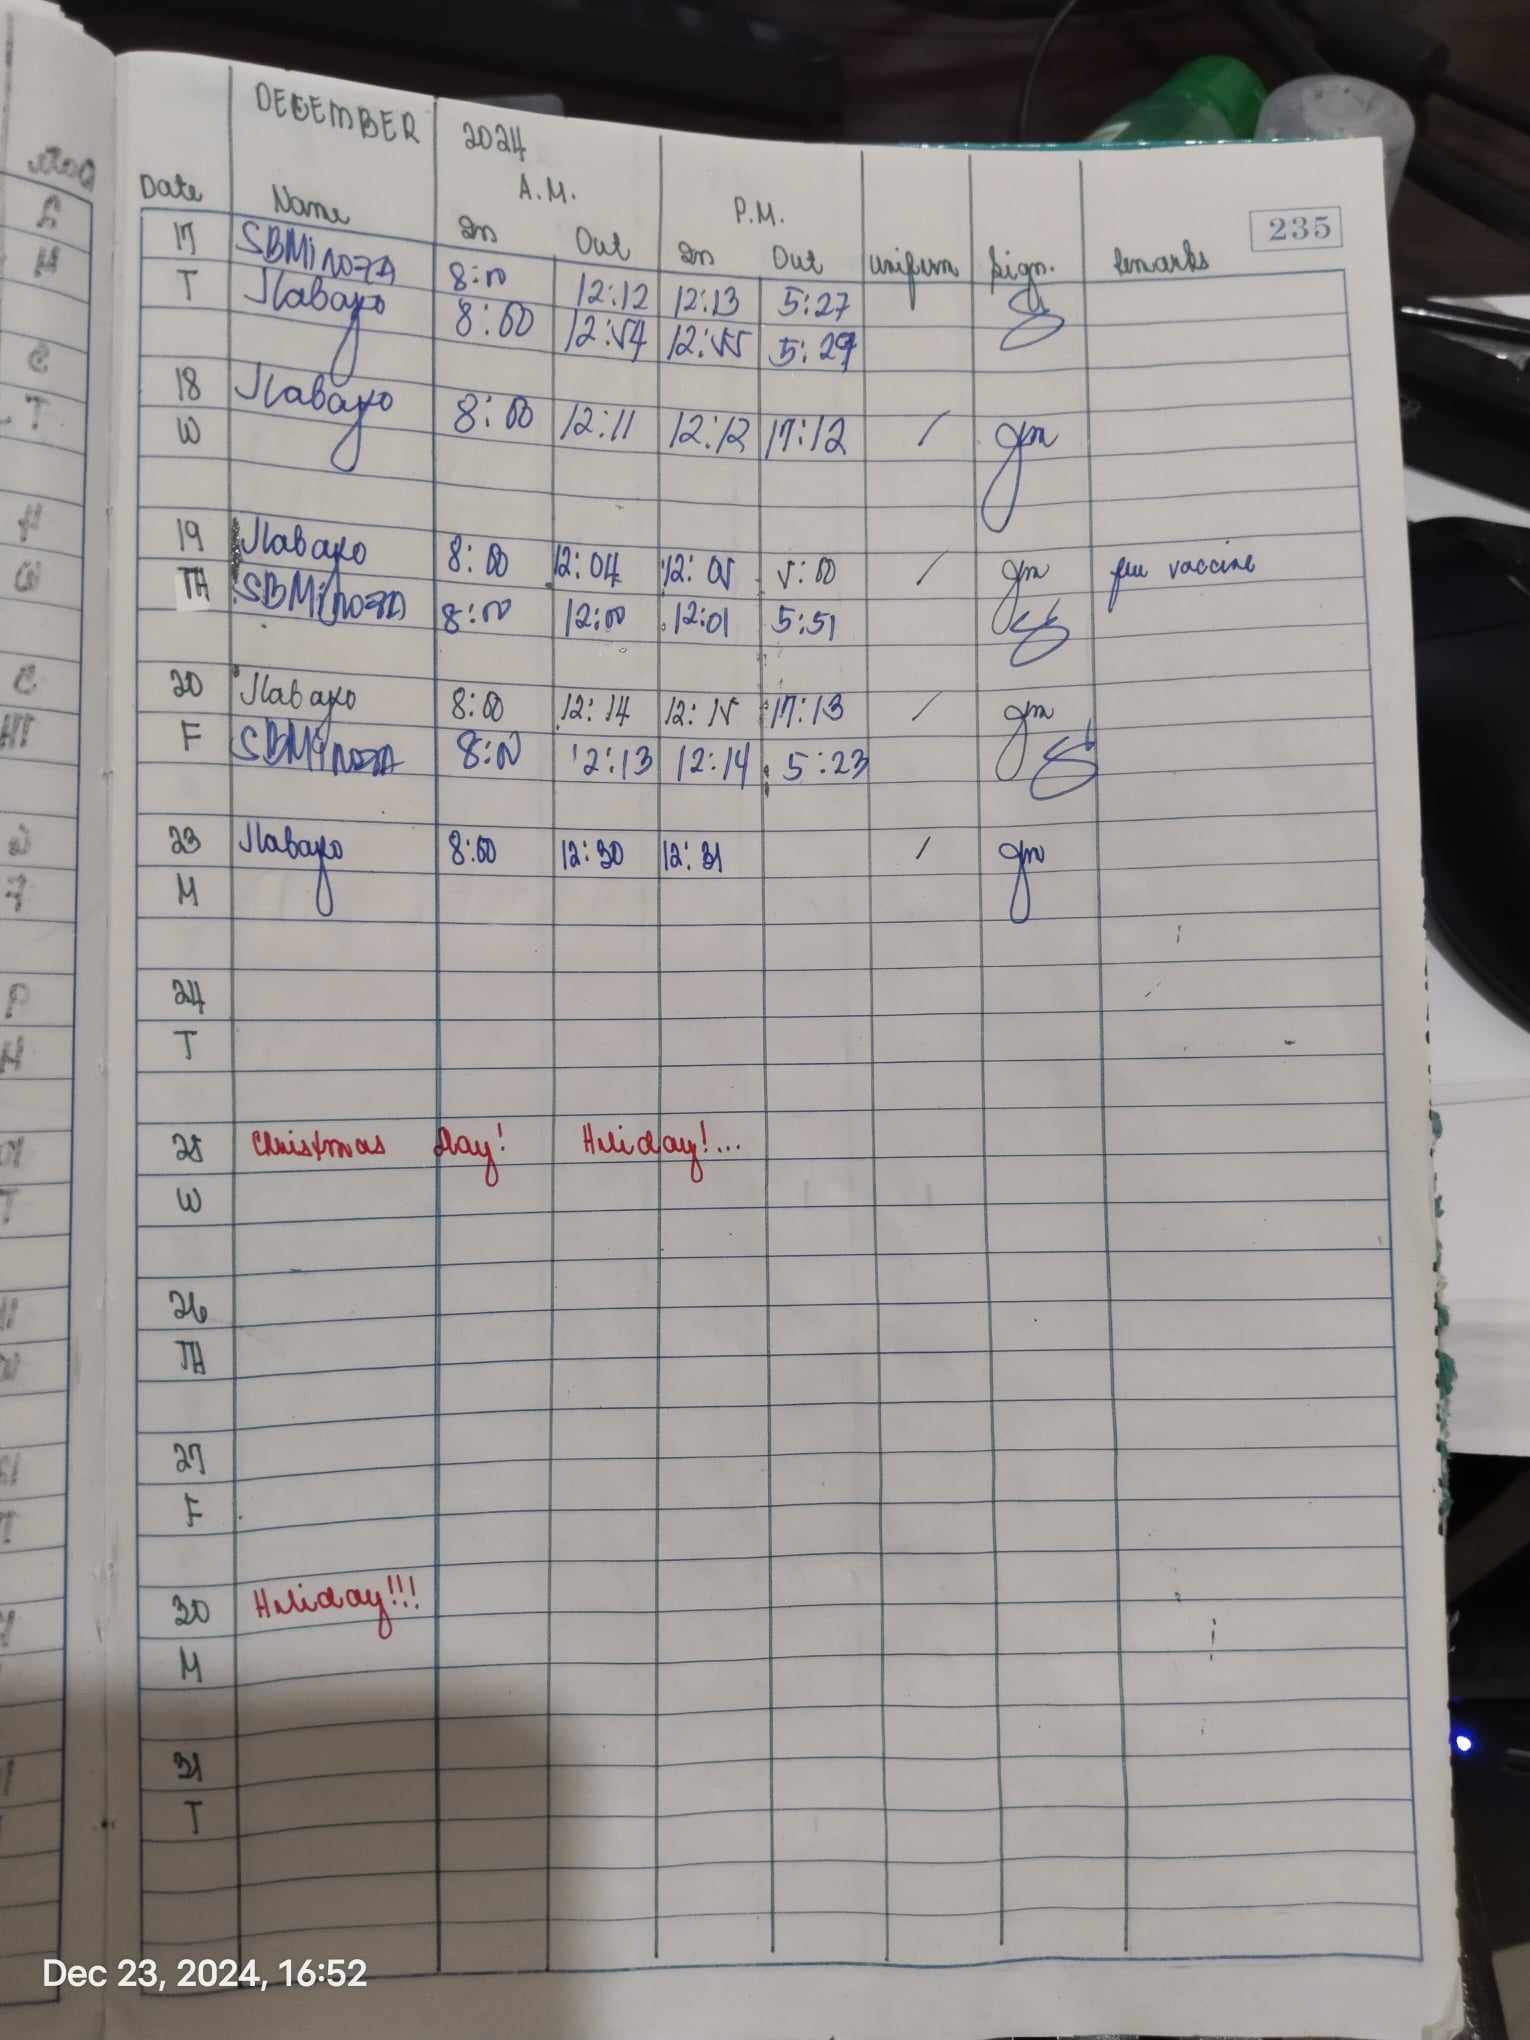 DECEMBER 2024
A.M. P.M.
235
Date Name In Out In Out uniform Sign. Remarks
17 SBMinoza 8:00 12:12 12:13 5:27
T 8:00 12:54 12:55 5:29
18 8:00 12:11 12:12 17:12 /
W
19 8:00 12:04 12:05 5:00 / flu vaccine
TH SBMinoza 8:00 12:00 12:01 5:51
20 8:00 12:14 12:15 17:13 /
F SBMinoza 8:00 12:13 12:14 5:23
23 8:00 12:30 12:31 /
M
24
T
25 Christmas Day! Holiday!...
W
26
TH
27
F
30 Holiday!!!
M
31
T
Dec 23, 2024, 16:52